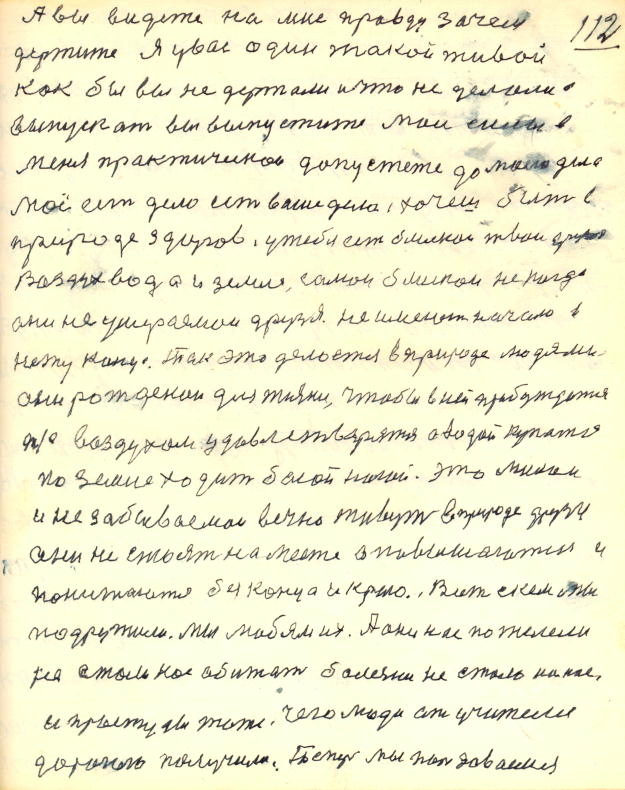 А вы видете на мне правду зачем 112
держите Я увас один такой живой
как бы вы не держали и что не делали
выпускат вы выпустите мои силы в
меня практичиской допустете до моего дела
моё ест дело ест ваше дела, хочеш быт в
природе здоров. утебя ест близкои твои друзя
Воздух вода и земля, самои близкои не когда
они не умираемои друзя. не имеют начало и
нету конца. Так это делается в природе людями
они рожденои для жизни, чтобы в ней прабуждатся
воздухом удовлетварятся а водой купатся
по земле ходит босой ногой. Это милои
и не забываемои вечно живут в природе друзя
они не стоят на месте а повышаются и
понижаются без конца и краю. Вот скем мы
подружили. мы любям их. А они нас пожелели
не стали нас обижат болезни не стало на нас,
и простуды тоже. Чего люди от учителя
дорогого получили. Тепер мы